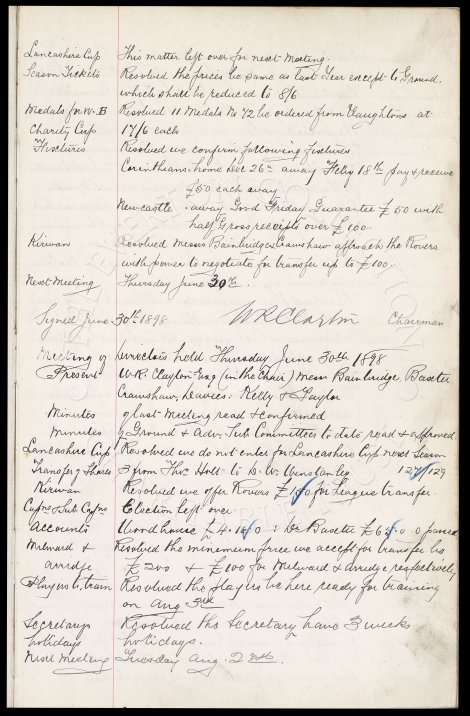 Lancashire Cup This matter left over for next Meeting.
Season Tickets Resolved the prices be same as last Year except to Ground.
which shall be reduced to 8/6
Medals for W.B Resolved 11 Medals No 72 be ordered from Vaughtons at
Charity Cup 17/6 each
Fixtures Resolved we confirm following fixtures
Corinthians: home Dec 26th away Feby 18th pay & receive
£50 each away
Newcastle - away Good Friday Guarantee £50 with
half Gross receipts over £100
Kirwan Resolved Messrs Bainbridge & Crawshaw approach the Rovers
with power to negotiate for transfer up to £100.
Next Meeting Thursday June 30th.
Signed June 30th 1898 W R Clayton Chairman
Meeting of Directors held Thursday June 30th 1898
Present W.R. Clayton Esq (in the Chair) Messrs Bainbridge, Baxter
Crawshaw, Davies, Kelly & Taylor
Minutes of last Meeting read & confirmed
Minutes of Ground & Adv. Sub Committees to date read & approved.
Lancashire Cup Resolved we do not enter for Lancashire Cup next Season
Transfer of Shares 3 from Thos Holt to D. W. Winstanley 127/129
Kirwan Resolved we offer Rovers for League transfer.
Election left over.
Accounts Woodhouse Dr Baxter passed
Milward & Resolved the minimum price we accept for transfer be
Arridge £200 & £100 for Milward & Arridge respectively
Players to train Resolved the players be here ready for training
on Aug 3rd
Secretarys Resolved the Secretary have 3 weeks
holidays holidays.
Next Meeting Tuesday Aug. 2nd.